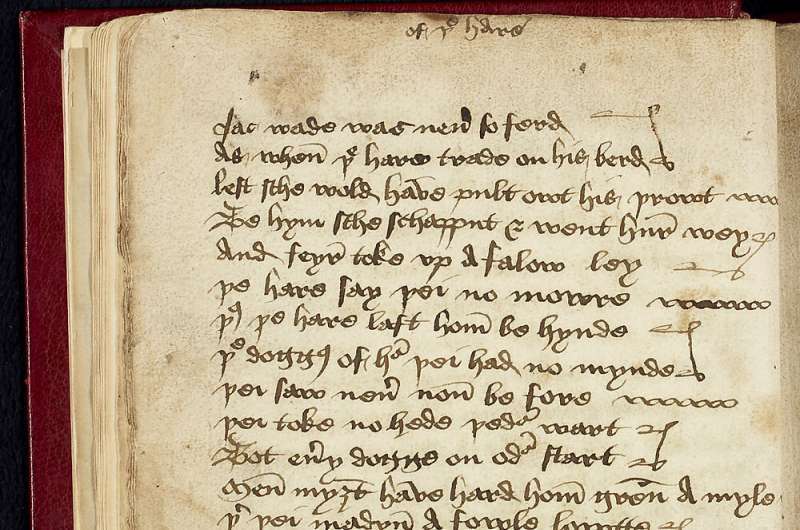 of þe hare
Jac wade was neũ so ferd
As when̄ þe hare trade on his berd
lest sche wold haue pult owt his þrowt
Be hym sche schappyt & went hur̃ wey
And feyr̃ toke vp A falow ley
þe hare say þei no mowre
þus þe hare laft hom̄ be hynde
þe doggus of hur þei had no mynde
þei saw neũ non̄ be fore
þei toke no hede þedur wart
Bot eũy dogge on odur start
Men̄ myȝt haue hard hom̄ gren̄ A myle
A fowle